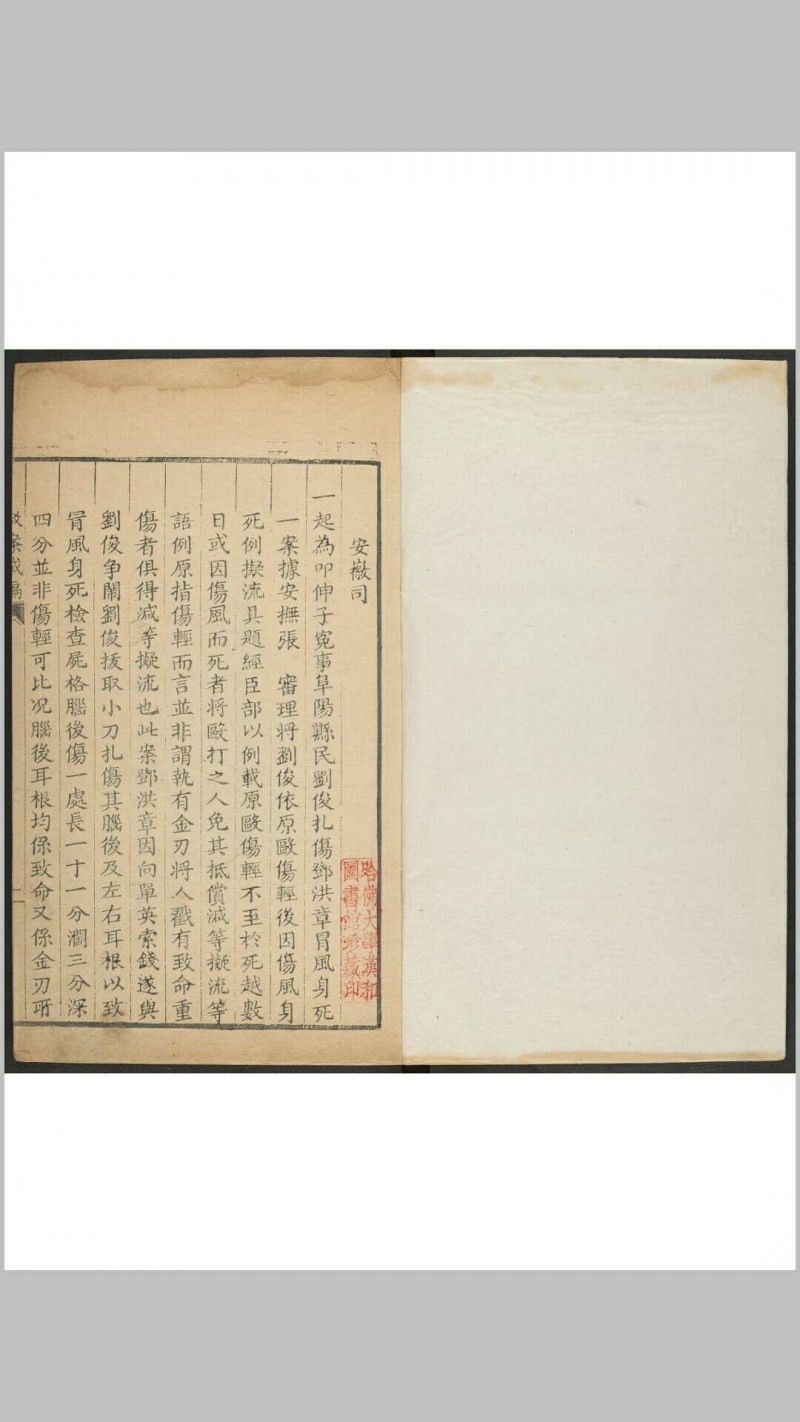 安徽司
一起為叩伸子寃事阜陽縣民劉俊扎傷鄧洪章冒風身死
一案據安撫張　審理將劉俊依原毆傷輕後因傷風身
死例擬流具題經臣部以例載原毆傷輕不至於死越數
日或因傷風而死者將毆打之人免其抵償減等擬流等
語例原指傷輕而言並非謂執有金刃將人戳有致命重
傷者俱得減等擬流也此案鄧洪章因向單英索錢遂與
劉俊争鬧劉俊拔取小刀扎傷其腦後及左右耳根以致
冒風身死檢查屍格腦後傷一處長一寸一分濶三分深
四分並非傷輕可比况腦後耳根均係致命又係金刃所
駁案成編
哈佛大學漢和
圖書館珍藏印